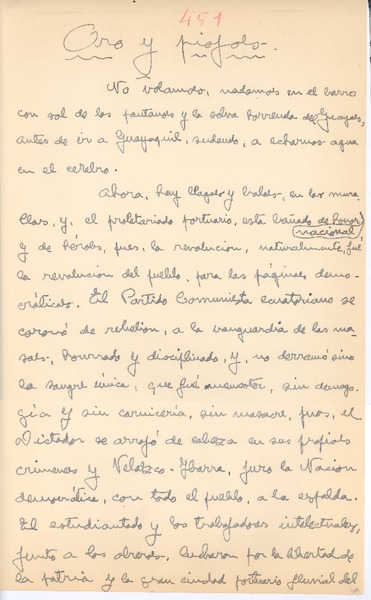 451
Oro y piojos.
No volamos, nadamos en el barro
con sol de los pantanos y la selva horrenda del Guayas,
antes de ir a Guayaquil, sudando, a echarnos agua
en el cerebro.
Ahora, hay llagas y balas, en las mura-
llas, y, el proletariado portuario, está bañado de honor
nacional,
y de héroes, pues, la revolución, naturalmente, fué
la revolución del pueblo, para las páginas demo-
cráticas. El Partido Comunista ecuatoriano se
coronó de rebelión, a la vanguardia de las ma-
sas, honrado y disciplinado, y, no derramó sino
la sangre única, que fué menester, sin demago-
gia y sin carnicería, sin masacre, pues, el
Dictador se arrojó de cabeza en sus propios
crímenes y Velazco-Ibarra, juró la Nación
democrática, con todo el pueblo, a la espalda.
El estudiantado y los trabajadores intelectuales,
junto a los obreros, lucharon por la libertad de
la patria y la gran ciudad portuario fluvial del